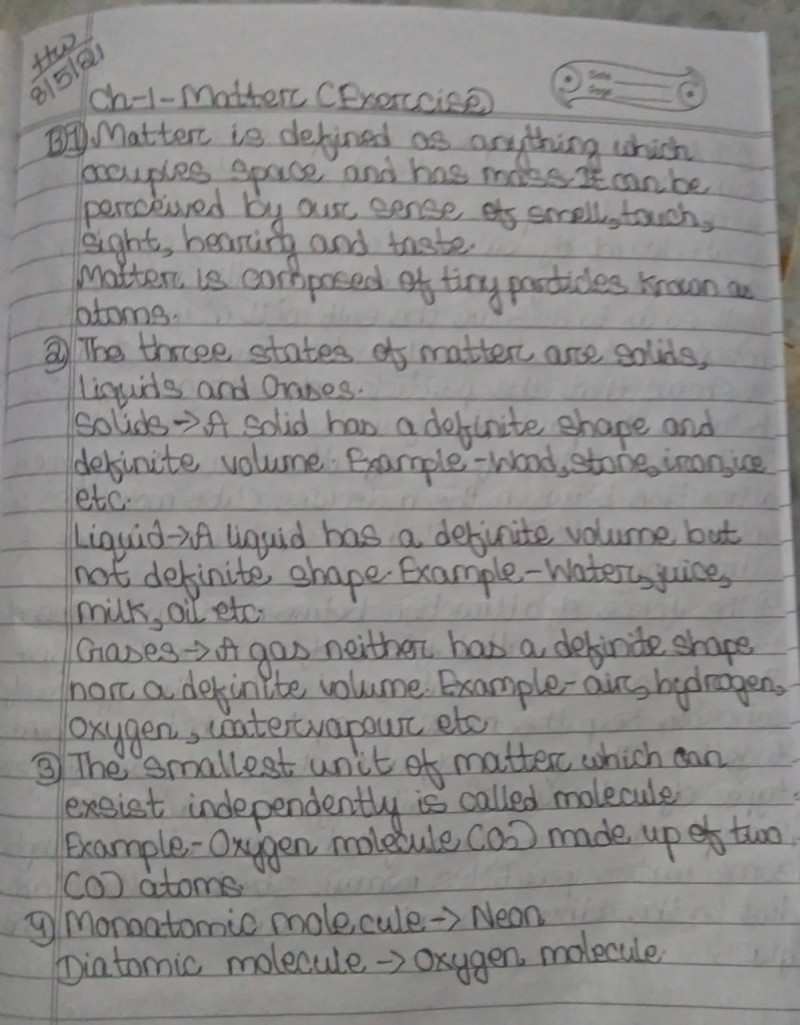 HW
8/5/21
Date
Page
Ch-1-Matter (Exercise)
B1) Matter is defined as anything which
occupies space and has mass. It can be
perceived by our sense of smell, touch,
sight, hearing and taste.
Matter is composed of tiny particles known as
atoms.
2) The three states of matter are solids,
Liquids and Gases.
Solids → A solid has a definite shape and
definite volume. Example - Wood, stone, iron, ice
etc.
Liquid → A liquid has a definite volume but
not definite shape. Example - Water, juice,
milk, oil etc.
Gases → A gas neither has a definite shape
nor a definite volume. Example - air, hydrogen,
oxygen, watervapour etc
3) The smallest unit of matter which can
exsist independently is called molecule.
Example - Oxygen molecule (O2) made up of two
(O) atoms.
4) Monoatomic molecule → Neon
Diatomic molecule → Oxygen molecule.